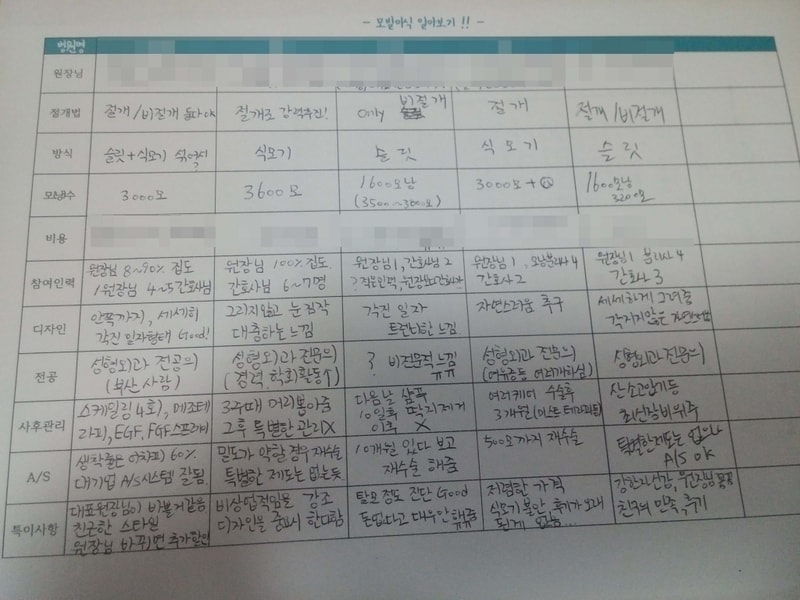 - 모발이식 알아보기 !! -
병원명
원장님
절개법 절개/비절개 둘다OK 절개로 강력추진! Only 비절개 절개 절개/비절개
방식 슬릿+식모기 섞어서 식모기 슬릿 식모기 슬릿
모낭수 3000모 3600모 1600모낭 3000모+@ 1600모낭
(3500~3600모) 3200모
비용
참여인력 원장님 8~90% 집도 원장님 100% 집도 원장님1, 간호사님2 원장님1, 모낭분리사4 원장님1 분리사4
1원장님 4~5간호사님 간호사님 6~7명 간호사2 간호사3
디자인 안쪽까지, 세세히 그리지않고 눈짐작 각진 일자 자연스러움 추구 세세하게 그려줌
각진 일자형태 Good! 대충하는느낌 트렌디한 느낌 각지지않은
전공 성형외과 전공의 성형외과 전문의 ? 비전문적느낌 성형외과 전문의 성형외과전문의
(부산 사람) (경력, 학회활동↑) ㅠㅠ
사후관리 스케일링 4회, 메조테 3주때 머리뽑아줌 다음날 샴푸 여러케어 수술후 산소고압기등
라피, EGF, FGF스프레이 그후 특별한 관리X 10일후 딱지제거 3개월 최신장비위주
이후 X
A/S 생착률은 어차피 60% 밀도가 약할 경우 재수술 10개월 있다 보고 500모까지 재수술 특별한제도는 없으나
대기업 A/S시스템 잘됨. 특별한 제도는 없는듯 재수술 해줌 A/S OK
특이사항 대표원장님이 바쁠거같음 비상업적임을 강조 탈모 정도 진단 Good 저렴한 가격 강한자신감, 원장님
친근한 스타일 디자인을 중요시 한다함 돈없다고 식모기 불안, 후기가 오래 친구의 만족, 후기
원장님 바뀌면 추가할인 된게 없음...